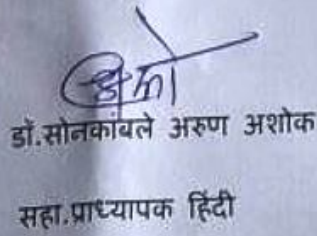 डॉ.सोनकांबले अरुण अशोक
सहा.प्राध्यापक हिंदी